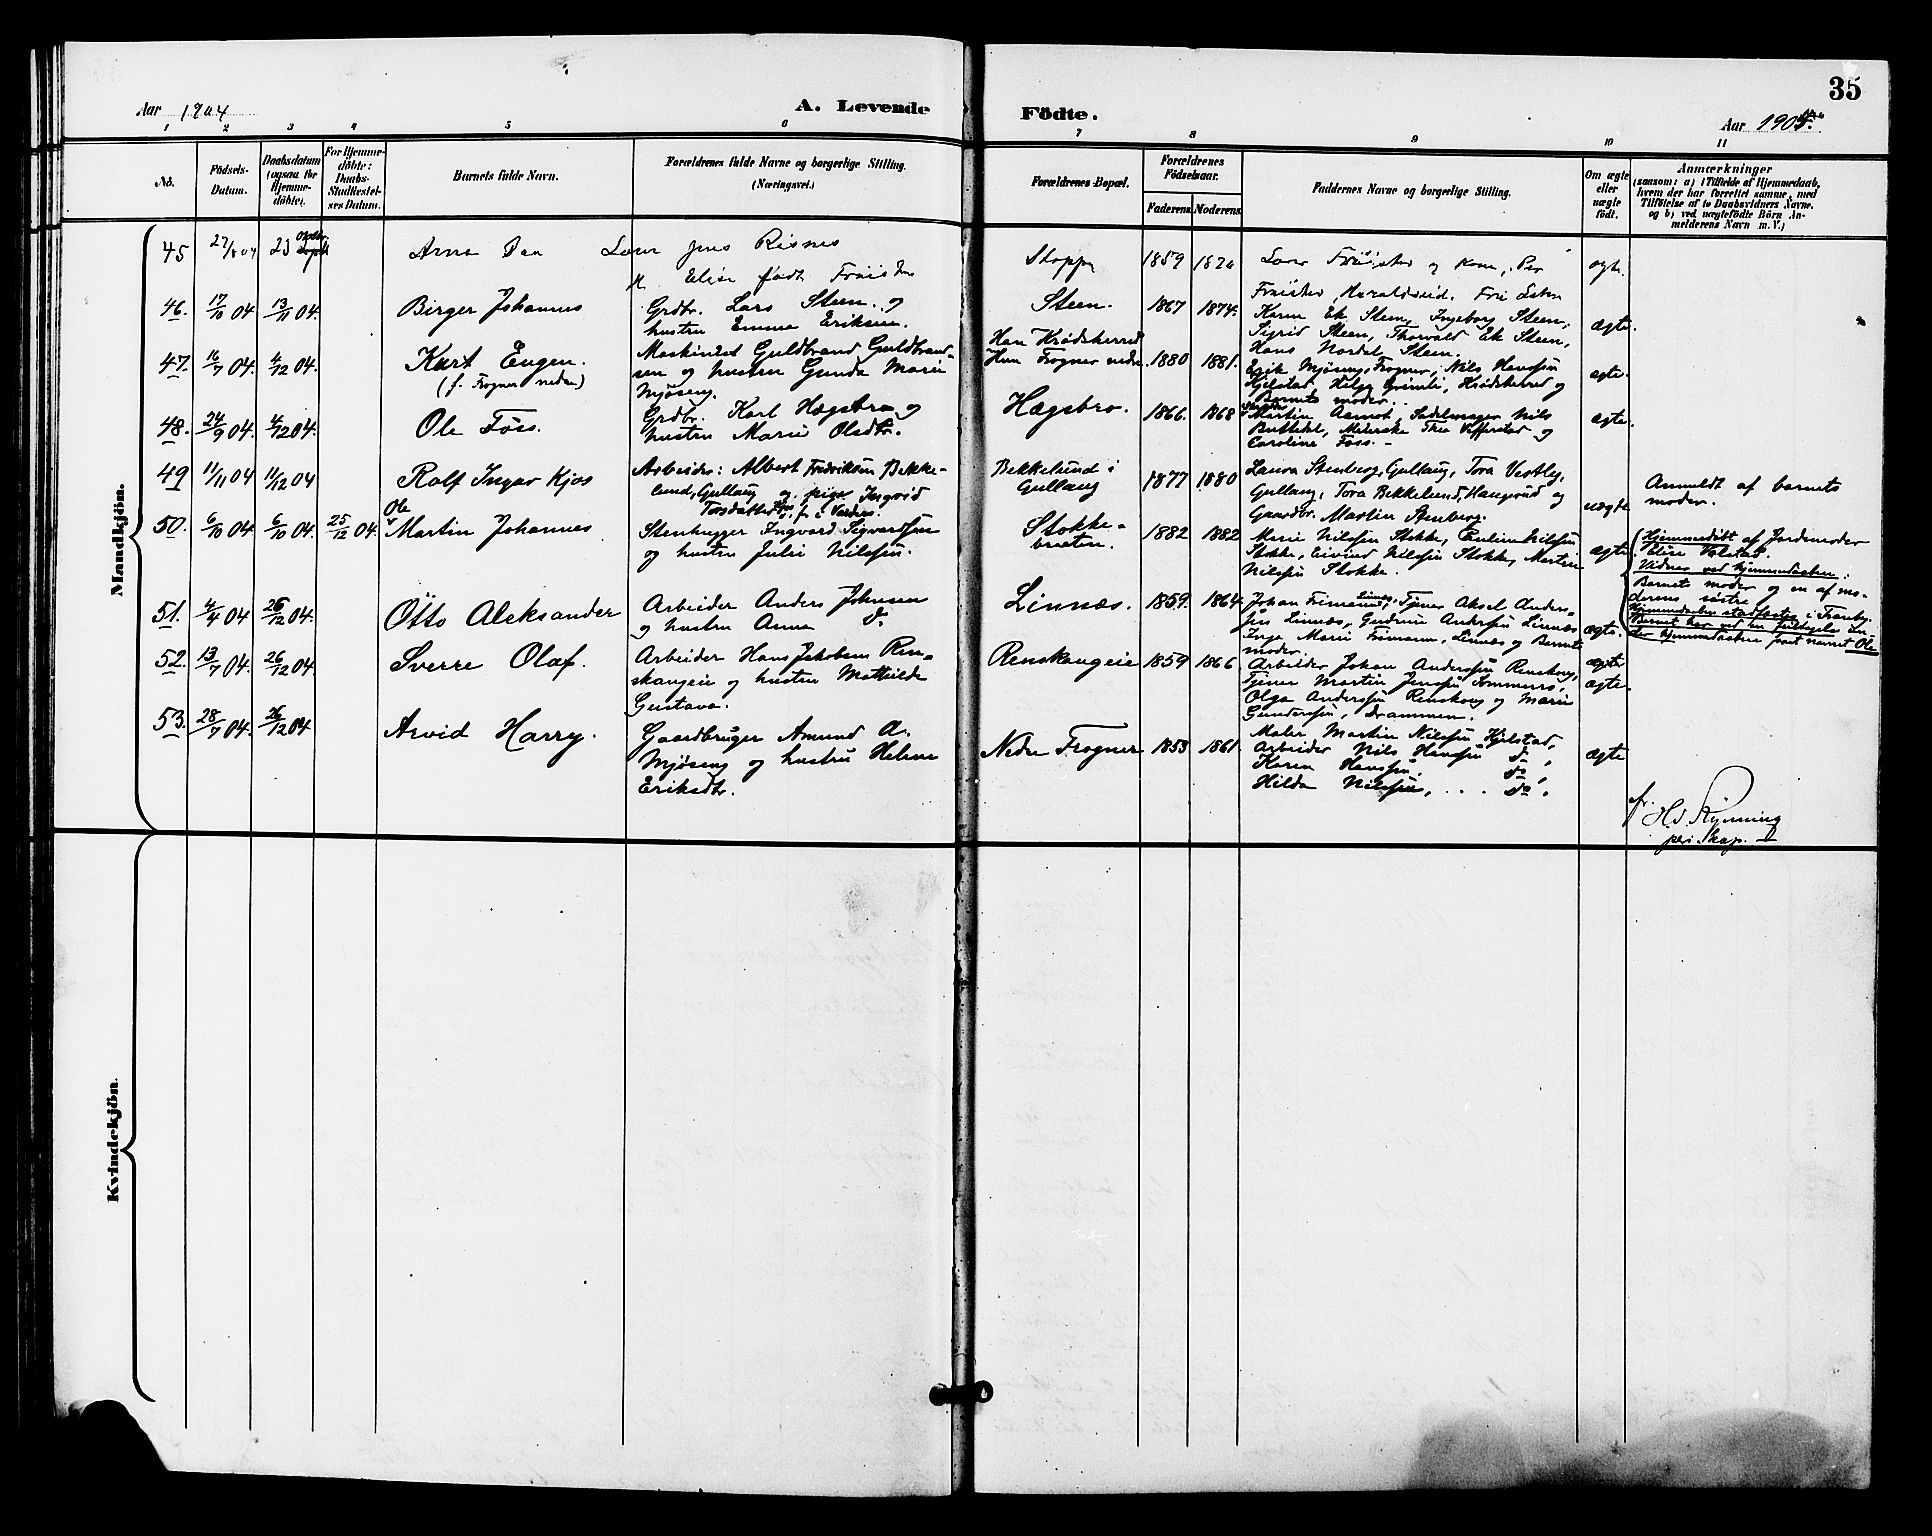 35
Aar 1904
A. Levende
Födte.
Aar 1904.
1 2 3 4 5 6 7 8 9 10 11
No.
Födsels-
Datum.
Daabsdatum
(ogsaa for
Hjemme-
döbte).
For Hjemme-
döbte:
Daabs-
Stadfæstel-
ses Datum.
Barnets fulde Navn.
Forældrenes fulde Navne og borgerlige Stilling.
(Næringsvei.)
Forældrenes Bopæl.
Forældrenes
Födselsaar.
Faderens
Moderens
Faddernes Navne og borgerlige Stilling.
Om ægte
eller
uægte
födt.
Anmærkninger
(saasom: a) i Tilfælde af Hjemmedaab,
hvem der har forrettet samme, med
Tilföielse af to Daabsvidners Navne.
og b) ved uægtefödte Börn An-
melderens Navn m. V.)
Mandkjön.
45 27/8 04 23 Oktbr.
Arne
Lærer Jens Risnes
Elise født
Stoppe
1859
Lærer og Kone, Per
ægte.
46. 17/10 04 13/11 04.
Birger Johannes
Grdbr. Lars Steen og
hustru Emma Eriksen.
Steen.
1867 1874.
Karen Ek. Steen, Ingeborg Steen,
Sigrid Steen, Thorvald Ek Steen,
Hans Steen.
ægte.
47. 16/7 04. 4/12 04.
Kurt Eugen.
(f. Frogner nedre)
Maskinist Guldbrand Guldbrand-
sen og hustru Gunda Marie
Mjøseng.
Han Krødsherred
Hun Frogner nedre
1880 1881.
Mjøseng, Frogner, Nils Hanssen
Hjelstad, Helge Krødsherred og
Barnets moder.
ægte.
48. 24/9 04. 4/12 04.
Ole Foss.
Grdbr. Karl Hægsbro og
hustru Marie Olsdtr.
Hægsbro.
1866. 1868
Martin Aamot, Sadelmager Nils
Thea og
Caroline Foss. -
ægte.
49 11/11 04 11/12 04
Rolf Ingvar Kjos
Arbeider: Albert Fredriksen Bekke-
lund, Gullaug og pige Ingrid
Bekkelund i
Gullaug
1877 1880
Laura Stenberg, Gullaug, Tora Vestby,
Gullaug, Tora Bekkelund, Haugerud og
Gaardbr. Martin Stenberg.
uægte
Anmeldt af barnets
moder.
50. 6/10 04 6/10 04. 25/12 04.
Ole
Martin Johannes
Stenhugger Ingvard Sigvardsen
og hustru Julie Nilssen.
Stokke-
braaten.
1882 1882
Marie Nilssen Stokke, Pauline Nilssen
Stokke, Eivind Nilssen Stokke, Martin
Nilssen Stokke.
ægte
Hjemmedöbt af Jordemoder
Elise Valstad.
Vidner ved hjemmedaaben:
Barnets moder og en af mo-
derens søstre
Hjemmedaaben stadfæstet i Tranby.
Barnet har ved en feiltagelse un-
der hjemmedaaben faaet navnet Ole
51. 4/4 04 26/12 04.
Otto Aleksander
Arbeider Anders Johnsen
og hustru Anna d.
Linnæs.
1859. 1864.
Johan Frimann, Linnæs, Tjener Aksel Anders-
sen Linnæs, Gudrun Anderssen Linnæs
Inga Marie Frimann, Linnæs og Barnets
moder.
ægte.
52. 13/7 04. 26/12 04.
Sverre Olaf.
Arbeider Hans Jakobsen Ren-
skaugeie og hustru Mathilde
Gustava.
Renskaugeie
1859 1866
Arbeider Johan Anderssen Renskoug,
Tjener Martin Jenssen Sommerro,
Olga Anderssen Renskoug og Marie
Gunderssen, Drammen.
ægte
ægte.
53. 28/7 04. 26/12 04
Arvid Harry.
Gaardbruger Amund A.
Mjøseng og hustru Helene
Eriksdtr.
Nedre Frogner
1853 1861.
Maler Martin Nilssen Hjelstad,
Arbeider Nils Hanssen do,
Karen Hanssen. do,
Hilda Nilssen, ... do.
ægte
Kvindekjön.